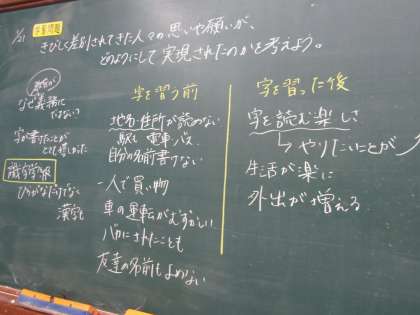 2/21 学習問題
きびしく差別されてきた人々の思いや願いが、
どのようにして実現されたのかを考えよう。
教育が
なぜ義務に
ではない?
字が書けたことが
とても嬉しかった
識字学級
ひらがなだけでなく
漢字も
字を習う前
地名・住所が読めない
駅も 電車・バス
自分の名前書けない
一人で買い物
車の運転がむずかしい
バカにされたことも
友達の名前もよめない
字を習った後
字を読む楽しさ
やりたいことが
生活が楽に
外出が増える